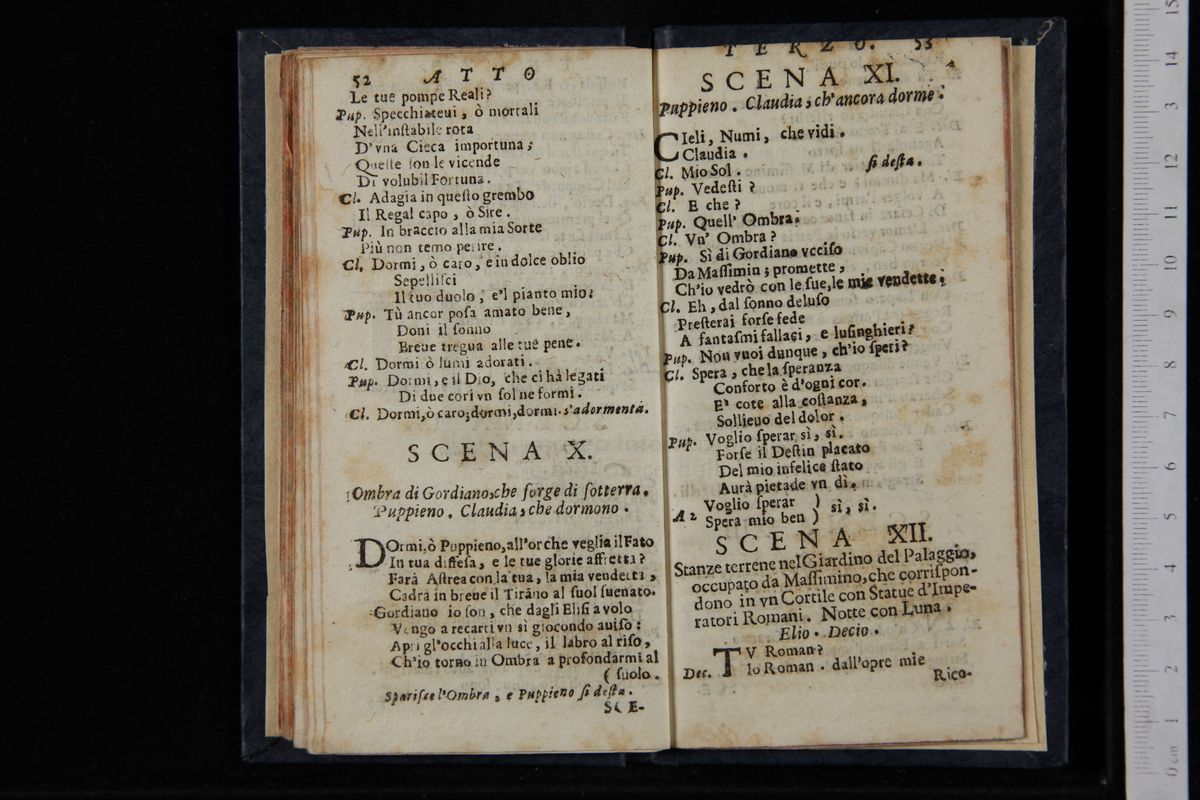 52 ATTO
Le tue pompe Reali?
Pup. Specchiateui, ò mortali
Nell'inſtabile rota
D'vna Cieca importuna;
Queſte ſon le vicende
Di volubil Fortuna.
Cl. Adagia in queſto grembo
Il Regal capo, ò Sire.
Pup. In braccio alla mia Sorte
Più non temo perire.
Cl. Dormi, ò caro, e in dolce oblio
Sepelliſci
Il tuo duolo, e'l pianto mio:
Pup. Tù ancor poſa amato bene,
Doni il ſonno
Breue tregua alle tuē pene.
Cl. Dormi ò lumi adorati.
Pup. Dormi, e il Dio, che ci hà legati
Di due cori vn ſol ne formi.
Cl. Dormi, ò caro; dormi, dormi. s'adormenta.
SCENA X.
Ombra di Gordiano, che ſorge di ſotterra.
Puppieno. Claudia, che dormono.
DOrmi, ò Puppieno, all'or che veglia il Fato
In tua diffeſa, e le tue glorie affretti?
Farà Aſtrea con la tua, la mia vendetta,
Cadrà in breue il Tirāno al ſuol ſuenato.
Gordiano io ſon, che dagli Eliſi a volo
Vengo a recarti vn sì giocondo auiſo:
Apri gl'occhi alla luce, il labro al riſo,
Ch'io torno in Ombra a profondarmi al
( ſuolo.
Spariſce l'Ombra, e Puppieno ſi deſta.
SCE-
TERZO. 53
SCENA XI.
Puppieno. Claudia, ch'ancora dorme.
CIeli, Numi, che vidi.
Claudia.
Cl. Mio Sol. ſi deſta.
Pup. Vedeſti?
Cl. E che?
Pup. Quell' Ombra.
Cl. Vn' Ombra?
Pup. Sì di Gordiano vcciſo
Da Maſſimin; promette,
Ch'io vedrò con le ſue, le mie vendette.
Cl. Eh, dal ſonno deluſo
Preſterai forſe fede
A fantaſmi fallaci, e luſinghieri?
Pup. Non vuoi dunque, ch'io ſperi?
Cl. Spera, che la ſperanza
Conforto è d'ogni cor.
E' cote alla coſtanza,
Sollieuo del dolor.
Pup. Voglio ſperar sì, sì.
Forſe il Deſtin placato
Del mio infelice ſtato
Aurà pietade vn dì.
A 2 Voglio ſperar ) sì, sì.
Spera mio ben )
SCENA XII.
Stanze terrene nel Giardino del Palaggio,
occupato da Maſſimino, che corriſpon-
dono in vn Cortile con Statue d'Impe-
ratori Romani. Notte con Luna.
Elio. Decio.
TV Roman?
Dec. Io Roman. dall'opre mie
Rico-